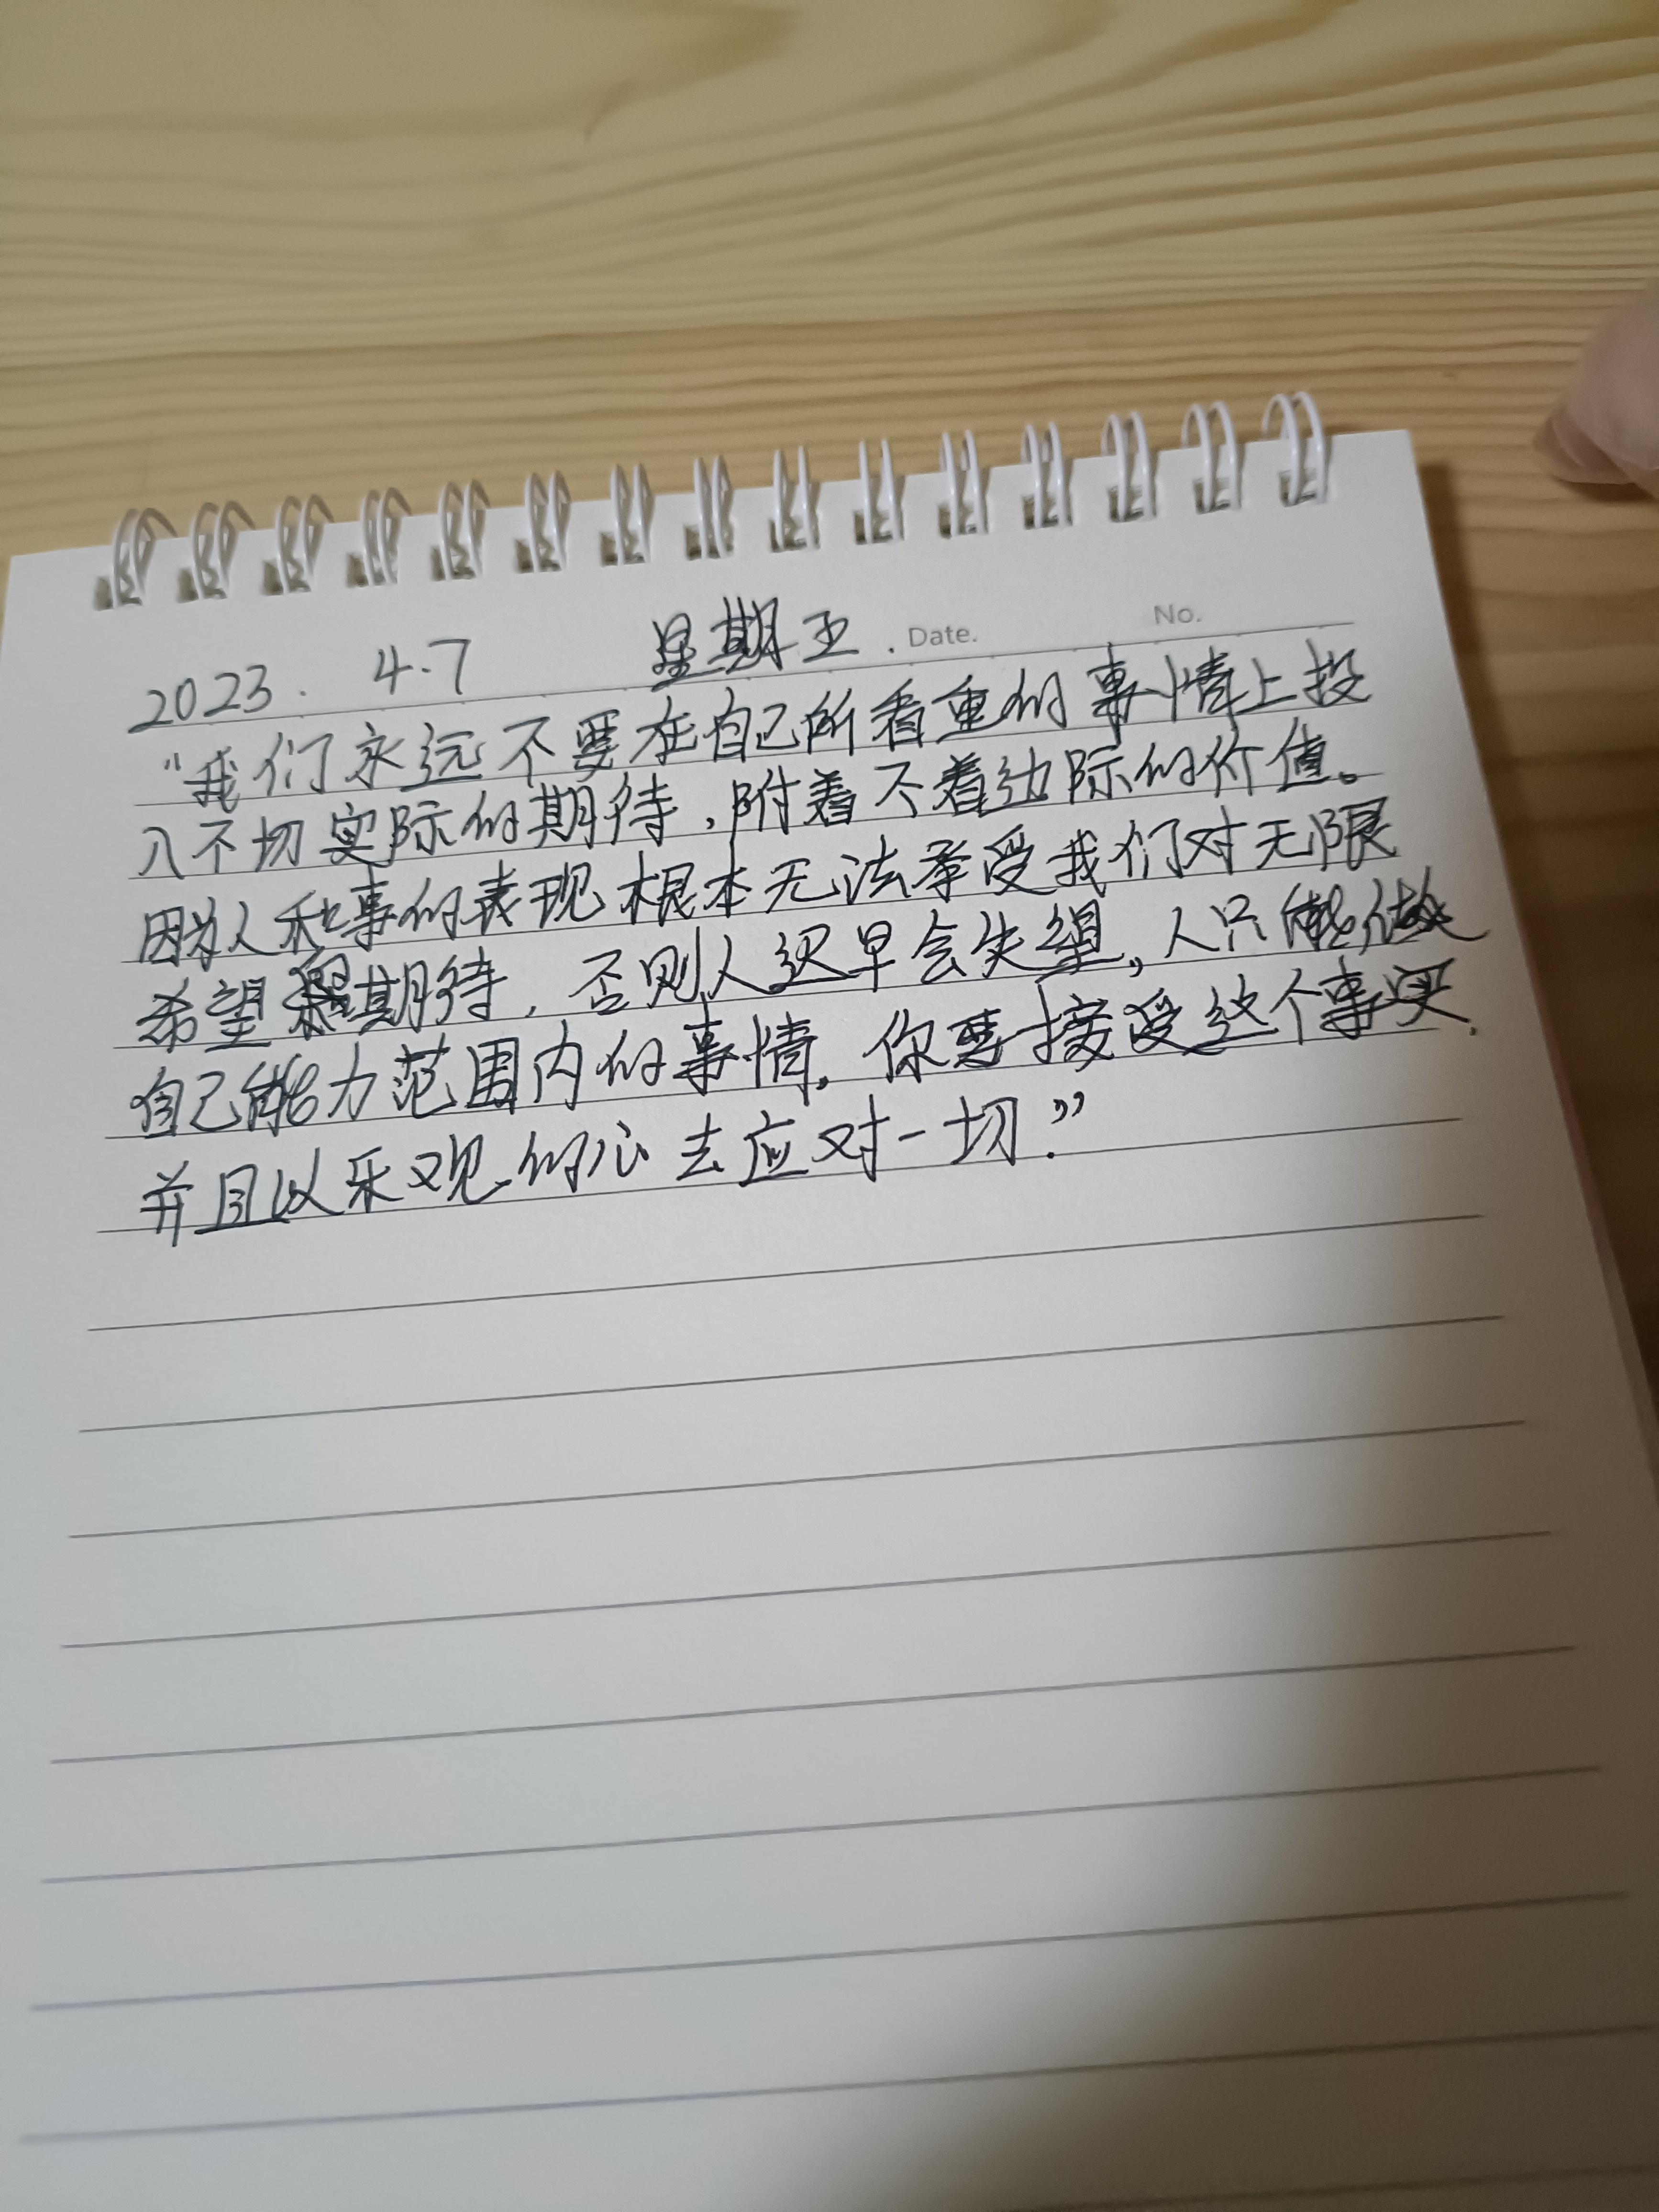 No.
2023. 4.7 星期五. Date.
“我们永远不要在自己所看重的事情上投
入不切实际的期待,附着不着边际的价值。
因为人和事的表现根本无法承受我们对无限
希望 期待,否则人迟早会失望,人只能做
自己能力范围内的事情,你要接受这个事实.
并且以乐观的心去应对一切.”